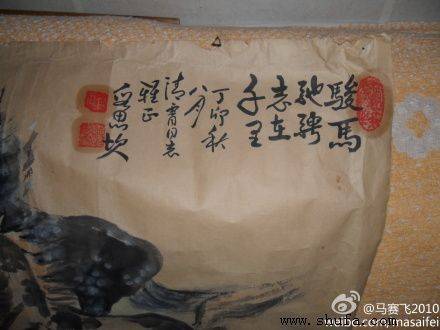 駿馬
馳騁
志在
千里
丁卯秋
八月
清霄同志
雅正
@马赛飞2010
weibo.com/masaifei
www.shuiba.com